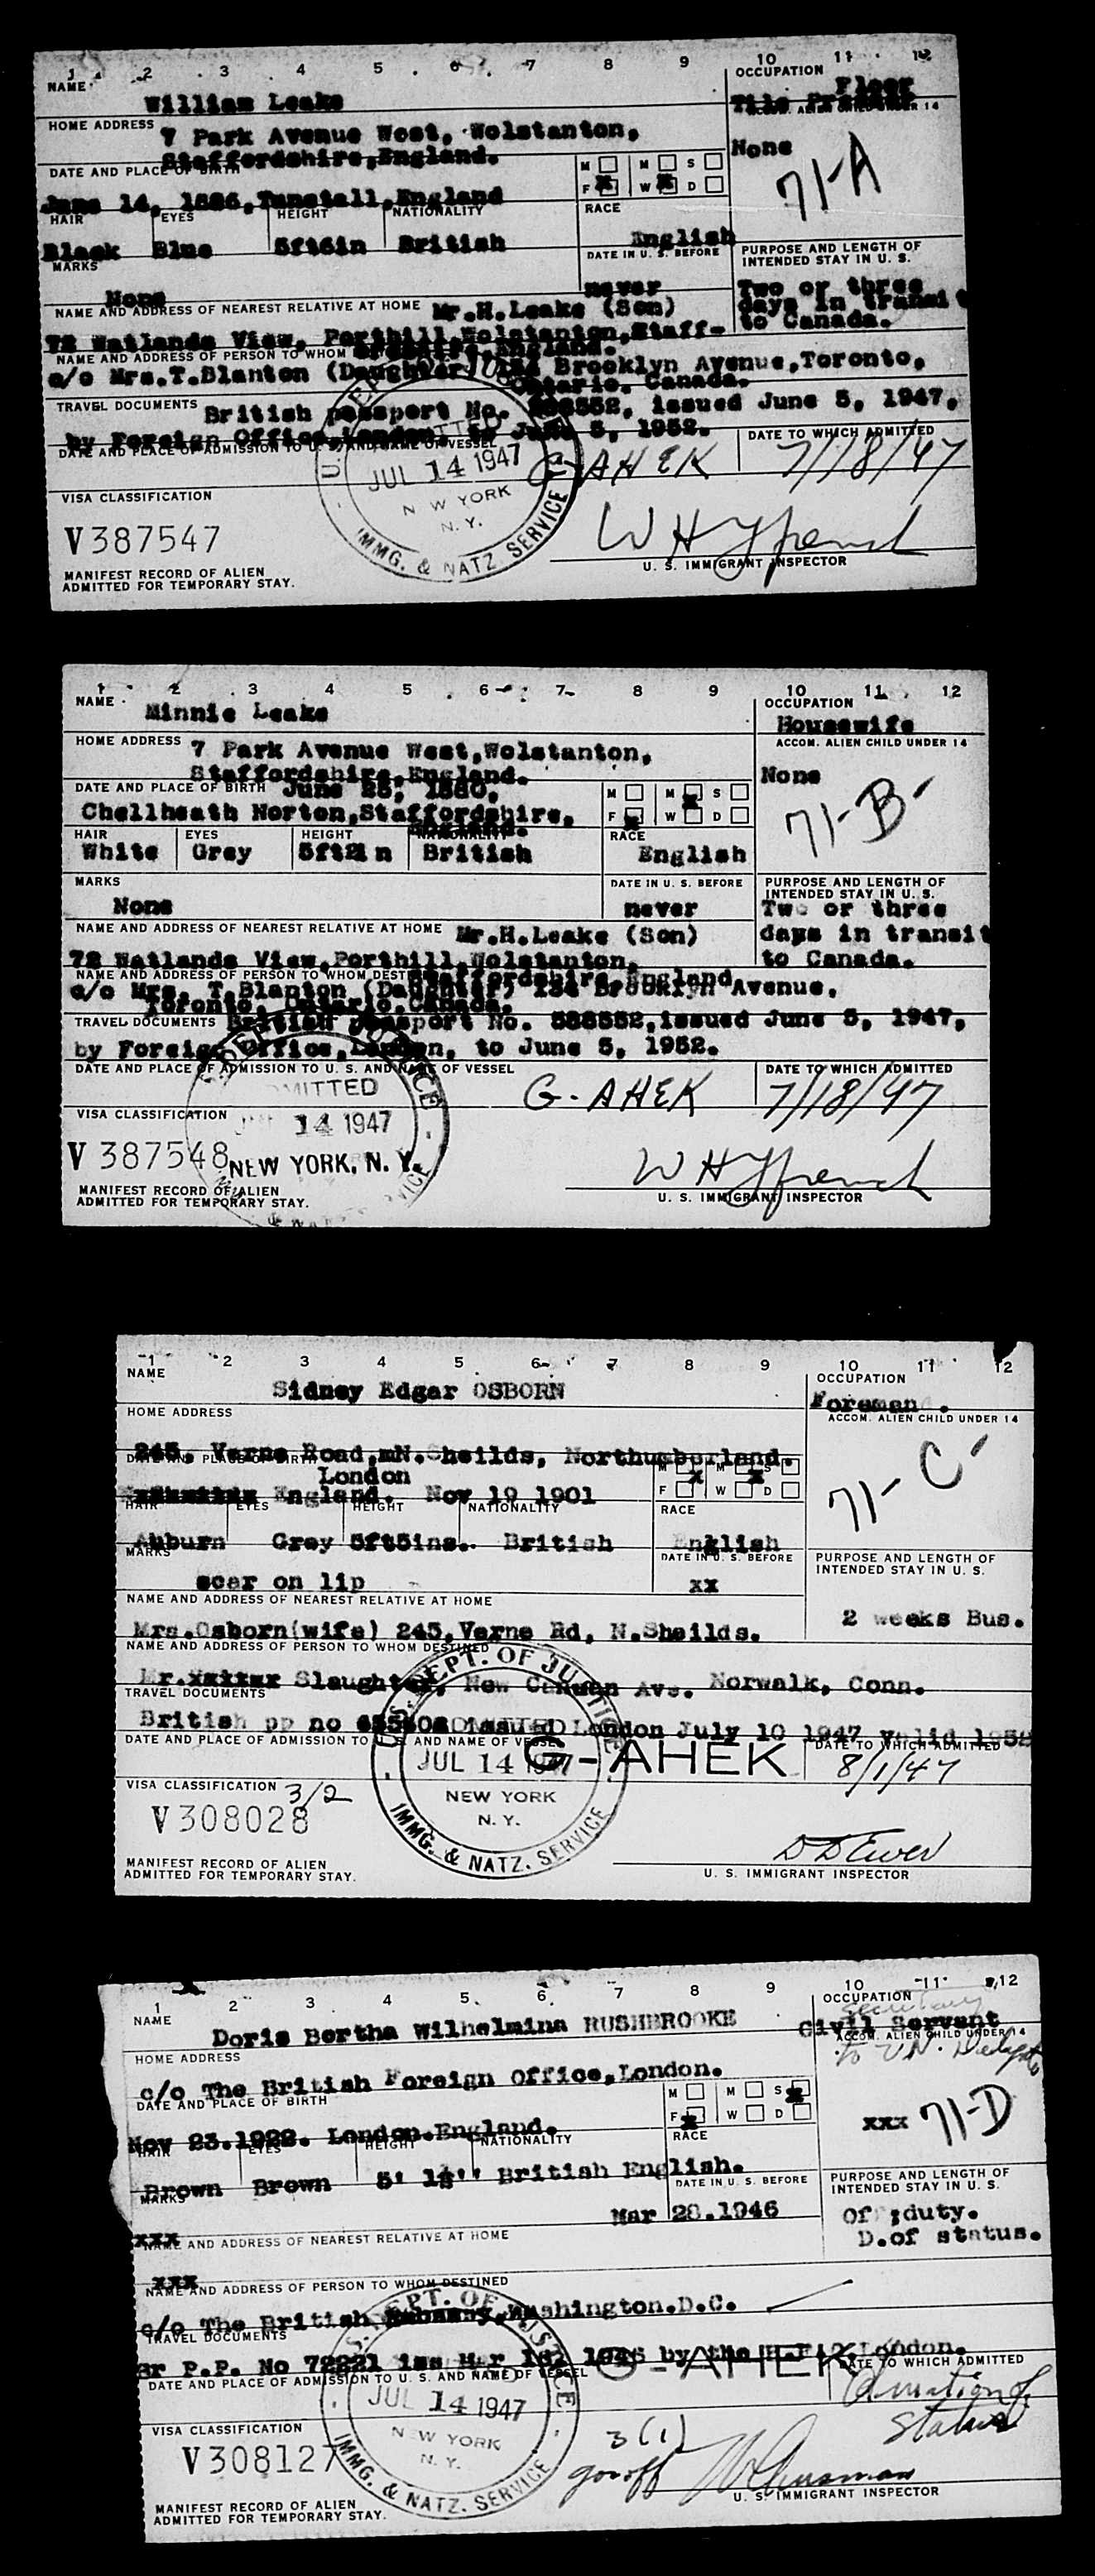 1 2 3 4 5 6 7 8 9 10 11 12
NAME
William Leake
OCCUPATION
Floor
Tile
HOME ADDRESS 7 Park Avenue West, Wolstanton,
Staffordshire,England.
None
71-A
DATE AND PLACE OF BIRTH
June 14, 1886,Tunstall,England
M M S
F W D
HAIR EYES HEIGHT NATIONALITY RACE
Black Blue 5ft6in British English
MARKS
None
DATE IN U. S. BEFORE
never
PURPOSE AND LENGTH OF
INTENDED STAY IN U. S.
Two or three
days in transit
to Canada.
NAME AND ADDRESS OF NEAREST RELATIVE AT HOME Mr.H.Leake (Son)
72 Watlands View, Porthill,Wolstanton,Staff-
ordshire,England.
NAME AND ADDRESS OF PERSON TO WHOM
c/o Mrs.T.Blanton (Daughter) 134 Brooklyn Avenue,Toronto,
Ontario. Canada.
TRAVEL DOCUMENTS British passport No. issued June 5, 1947,
by Foreign Office,London, to June 5, 1952.
DATE AND PLACE OF ADMISSION TO U. S. AND NAME OF VESSEL
G-AHEK
DATE TO WHICH ADMITTED
7/18/47
JUL 14 1947
NEW YORK
N. Y.
IMMG. & NATZ. SERVICE
VISA CLASSIFICATION
V387547
U. S. IMMIGRANT INSPECTOR
MANIFEST RECORD OF ALIEN
ADMITTED FOR TEMPORARY STAY.
1 2 3 4 5 6 7 8 9 10 11 12
NAME
Minnie Leake
OCCUPATION
Housewife
HOME ADDRESS 7 Park Avenue West,Wolstanton,
Staffordshire,England.
ACCOM. ALIEN CHILD UNDER 14
None
71-B
DATE AND PLACE OF BIRTH June 25, 1880,
Chellheath Norton,Staffordshire,
England.
M M S
F W D
HAIR EYES HEIGHT NATIONALITY RACE
White Grey British English
MARKS
None
DATE IN U. S. BEFORE
never
PURPOSE AND LENGTH OF
INTENDED STAY IN U. S.
Two or three
days in transit
to Canada.
NAME AND ADDRESS OF NEAREST RELATIVE AT HOME Mr.H.Leake (Son)
72 Watlands View,Porthill,Wolstanton,
Staffordshire,England
NAME AND ADDRESS OF PERSON TO WHOM DEST
c/o Mrs. T.Blanton (Daughter) 134 Brooklyn Avenue,
Toronto, Ontario.Canada.
TRAVEL DOCUMENTS British passport No. 588552,issued June 5, 1947,
by Foreign Office,London, to June 5, 1952.
DATE AND PLACE OF ADMISSION TO U. S. AND NAME OF VESSEL
G-AHEK
DATE TO WHICH ADMITTED
7/18/47
ADMITTED
14 1947
NEW YORK, N. Y.
VISA CLASSIFICATION
V 387548
U. S. IMMIGRANT INSPECTOR
MANIFEST RECORD OF ALIEN
ADMITTED FOR TEMPORARY STAY.
1 2 3 4 5 6 7 8 9 10 11 12
NAME
Sidney Edgar OSBORN
OCCUPATION
Foreman.
HOME ADDRESS
245, Verne Road, N.Sheilds, Northumberland.
ACCOM. ALIEN CHILD UNDER 14
71-C
DATE AND PLACE OF BIRTH
London
England. Nov 19 1901
M M S
F W D
HAIR EYES HEIGHT NATIONALITY RACE
Auburn Grey 5ft5ins. British English
MARKS
scar on lip
DATE IN U. S. BEFORE
xx
PURPOSE AND LENGTH OF
INTENDED STAY IN U. S.
2 weeks Bus.
NAME AND ADDRESS OF NEAREST RELATIVE AT HOME
Mrs.Osborn(wife) 245,Verne Rd, N.Sheilds.
NAME AND ADDRESS OF PERSON TO WHOM DESTINED
Mr. Slaughter, New Canaan Ave. Norwalk, Conn.
TRAVEL DOCUMENTS
British pp no issued London July 10 1947 valid 1952
DATE AND PLACE OF ADMISSION TO U. S. AND NAME OF VESSEL
G-AHEK
DATE TO WHICH ADMITTED
8/1/47
U. S. DEPT. OF JUSTICE
ADMITTED
JUL 14 1947
NEW YORK
N. Y.
IMMG. & NATZ. SERVICE
VISA CLASSIFICATION 3/2
V308028
D D Ewer
U. S. IMMIGRANT INSPECTOR
MANIFEST RECORD OF ALIEN
ADMITTED FOR TEMPORARY STAY.
1 2 3 4 5 6 7 8 9 10 11 12
NAME
Doris Bertha Wilhelmina RUSHBROOKE
OCCUPATION
Secretary
Civil Servant
to U.N. Delegate
HOME ADDRESS
c/o The British Foreign Office,London.
ACCOM. ALIEN CHILD UNDER 14
xxx 71-D
DATE AND PLACE OF BIRTH
Nov 23.1922. London.England.
M M S
F W D
HAIR EYES HEIGHT NATIONALITY RACE
Brown Brown British English.
MARKS
xxx
DATE IN U. S. BEFORE
Mar 28.1946
PURPOSE AND LENGTH OF
INTENDED STAY IN U. S.
Of ;duty.
D.of status.
NAME AND ADDRESS OF NEAREST RELATIVE AT HOME
xxx
NAME AND ADDRESS OF PERSON TO WHOM DESTINED
c/o The British Embassy,Washington.D.C.
TRAVEL DOCUMENTS
Br P.P. No 72221 iss Mar 1946 by the London.
DATE AND PLACE OF ADMISSION TO U. S. AND NAME OF VESSEL
G-AHEK
DATE TO WHICH ADMITTED
Duration of
Status
DEPT. OF JUSTICE
JUL 14 1947
NEW YORK
N. Y.
IMMG. & NATZ. SERVICE
VISA CLASSIFICATION
3(1)
V308127
U. S. IMMIGRANT INSPECTOR
MANIFEST RECORD OF ALIEN
ADMITTED FOR TEMPORARY STAY.